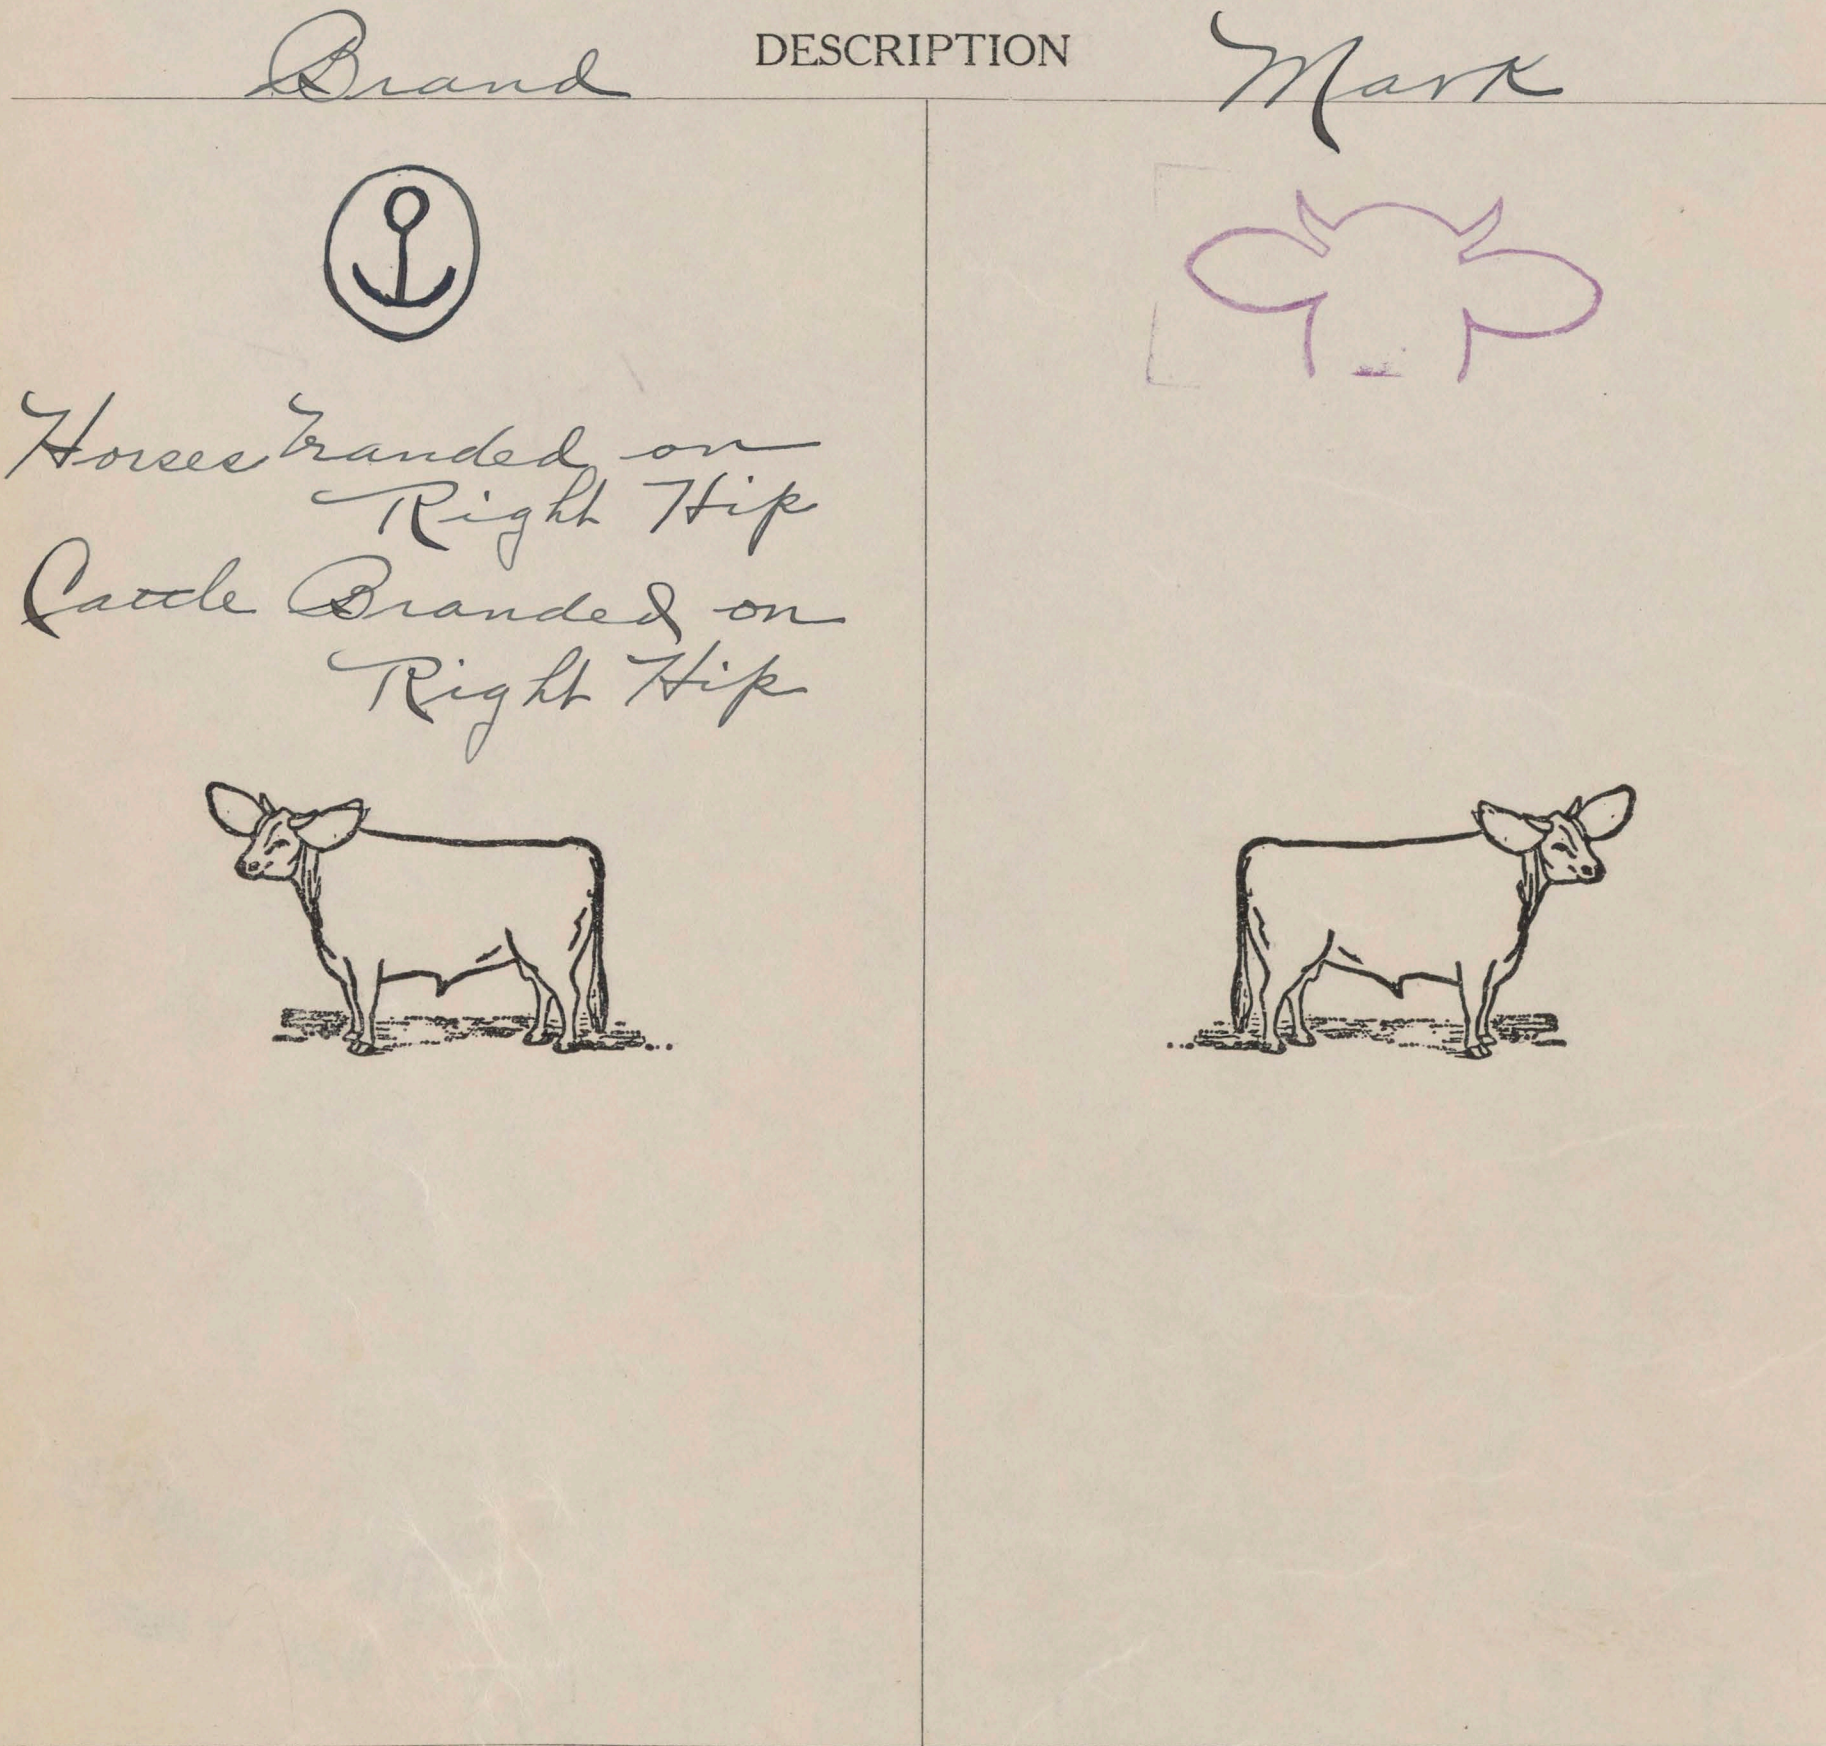 Brand DESCRIPTION Mark
Horses branded on
Right Hip
Cattle Branded on
Right Hip